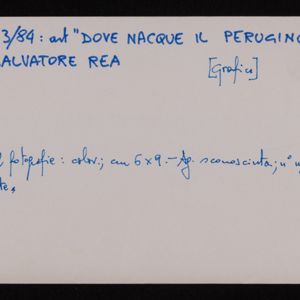 3/84: art "DOVE NACQUE IL PERUGINO
SALVATORE REA
[Grafica]
fotografie: color.; cm 6x9.- Ag. sconosciuta; n°